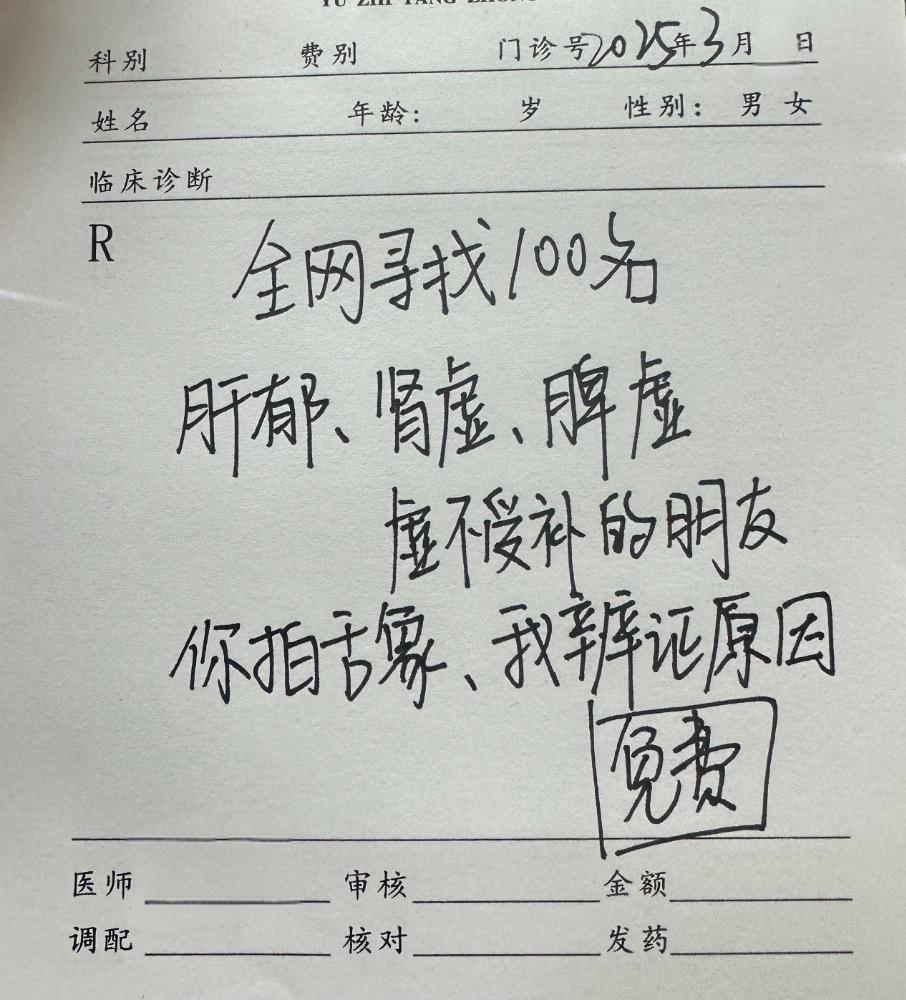 科别 费别 门诊号2025年3月 日
姓名 年龄: 岁 性别: 男 女
临床诊断
R
全网寻找100名
肝郁、肾虚、脾虚
虚不受补的朋友
你拍舌象、我辨证原因
免费
医师 审核 金额
调配 核对 发药